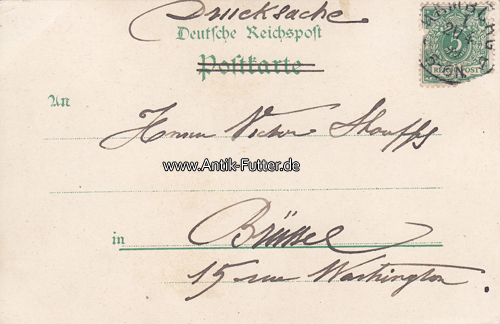 Drucksache
Deutsche Reichspost
Postkarte
5
REICHSPOST
An
Herrn Victor
www.Antik-Futter.de
in Brüssel
15 rue Washington.